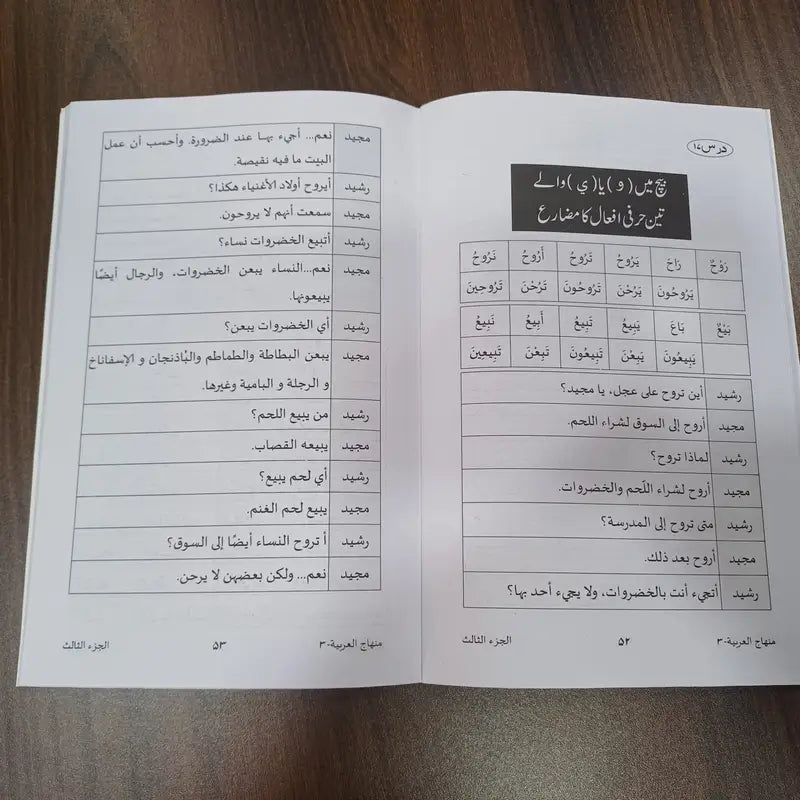 درس ۱۷
بیچ میں ( و ) یا ( ي ) والے
تین حرفی افعال کا مضارع
رَوْحٌ رَاحَ يَرُوْحُ تَرُوْحُ أَرُوْحُ نَرُوْحُ
يَرُوْحُونَ يَرُحْنَ تَرُوْحُونَ تَرُحْنَ تَرُوْحِينَ
بَيْعٌ بَاعَ يَبِيعُ تَبِيعُ أَبِيعُ نَبِيعُ
يَبِيعُونَ يَبِعْنَ تَبِيعُونَ تَبِعْنَ تَبِيعِينَ
رشيد أين تروح على عجل، يا مجيد؟
مجيد أروح إلى السوق لشراء اللحم.
رشيد لماذا تروح؟
مجيد أروح لشراء اللّحم والخضروات.
رشيد متى تروح إلى المدرسة؟
مجيد أروح بعد ذلك.
رشيد أتجيء أنت بالخضروات، ولا يجيء أحد بها؟
منهاج العربية-۳ ۵۲ الجزء الثالث
مجيد نعم... أجيء بها عند الضرورة. وأحسب أن عمل
البيت ما فيه نقيصة.
رشيد أيروح أولاد الأغنياء هكذا؟
مجيد سمعت أنهم لا يروحون.
رشيد أتبيع الخضروات نساء؟
مجيد نعم...النساء يبعن الخضروات، والرجال أيضًا
يبيعونها.
رشيد أي الخضروات يبعن؟
مجيد يبعن البطاطة والطماطم والبُاذنجان و الإسفاناخ
و الرجلة و البامية وغيرها.
رشيد من يبيع اللحم؟
مجيد يبيعه القصاب.
رشيد أي لحم يبيع؟
مجيد يبيع لحم الغنم.
رشيد أ تروح النساء أيضًا إلى السوق؟
مجيد نعم... ولكن بعضهن لا يرحن.
منهاج العربية-۳ ۵۳ الجزء الثالث